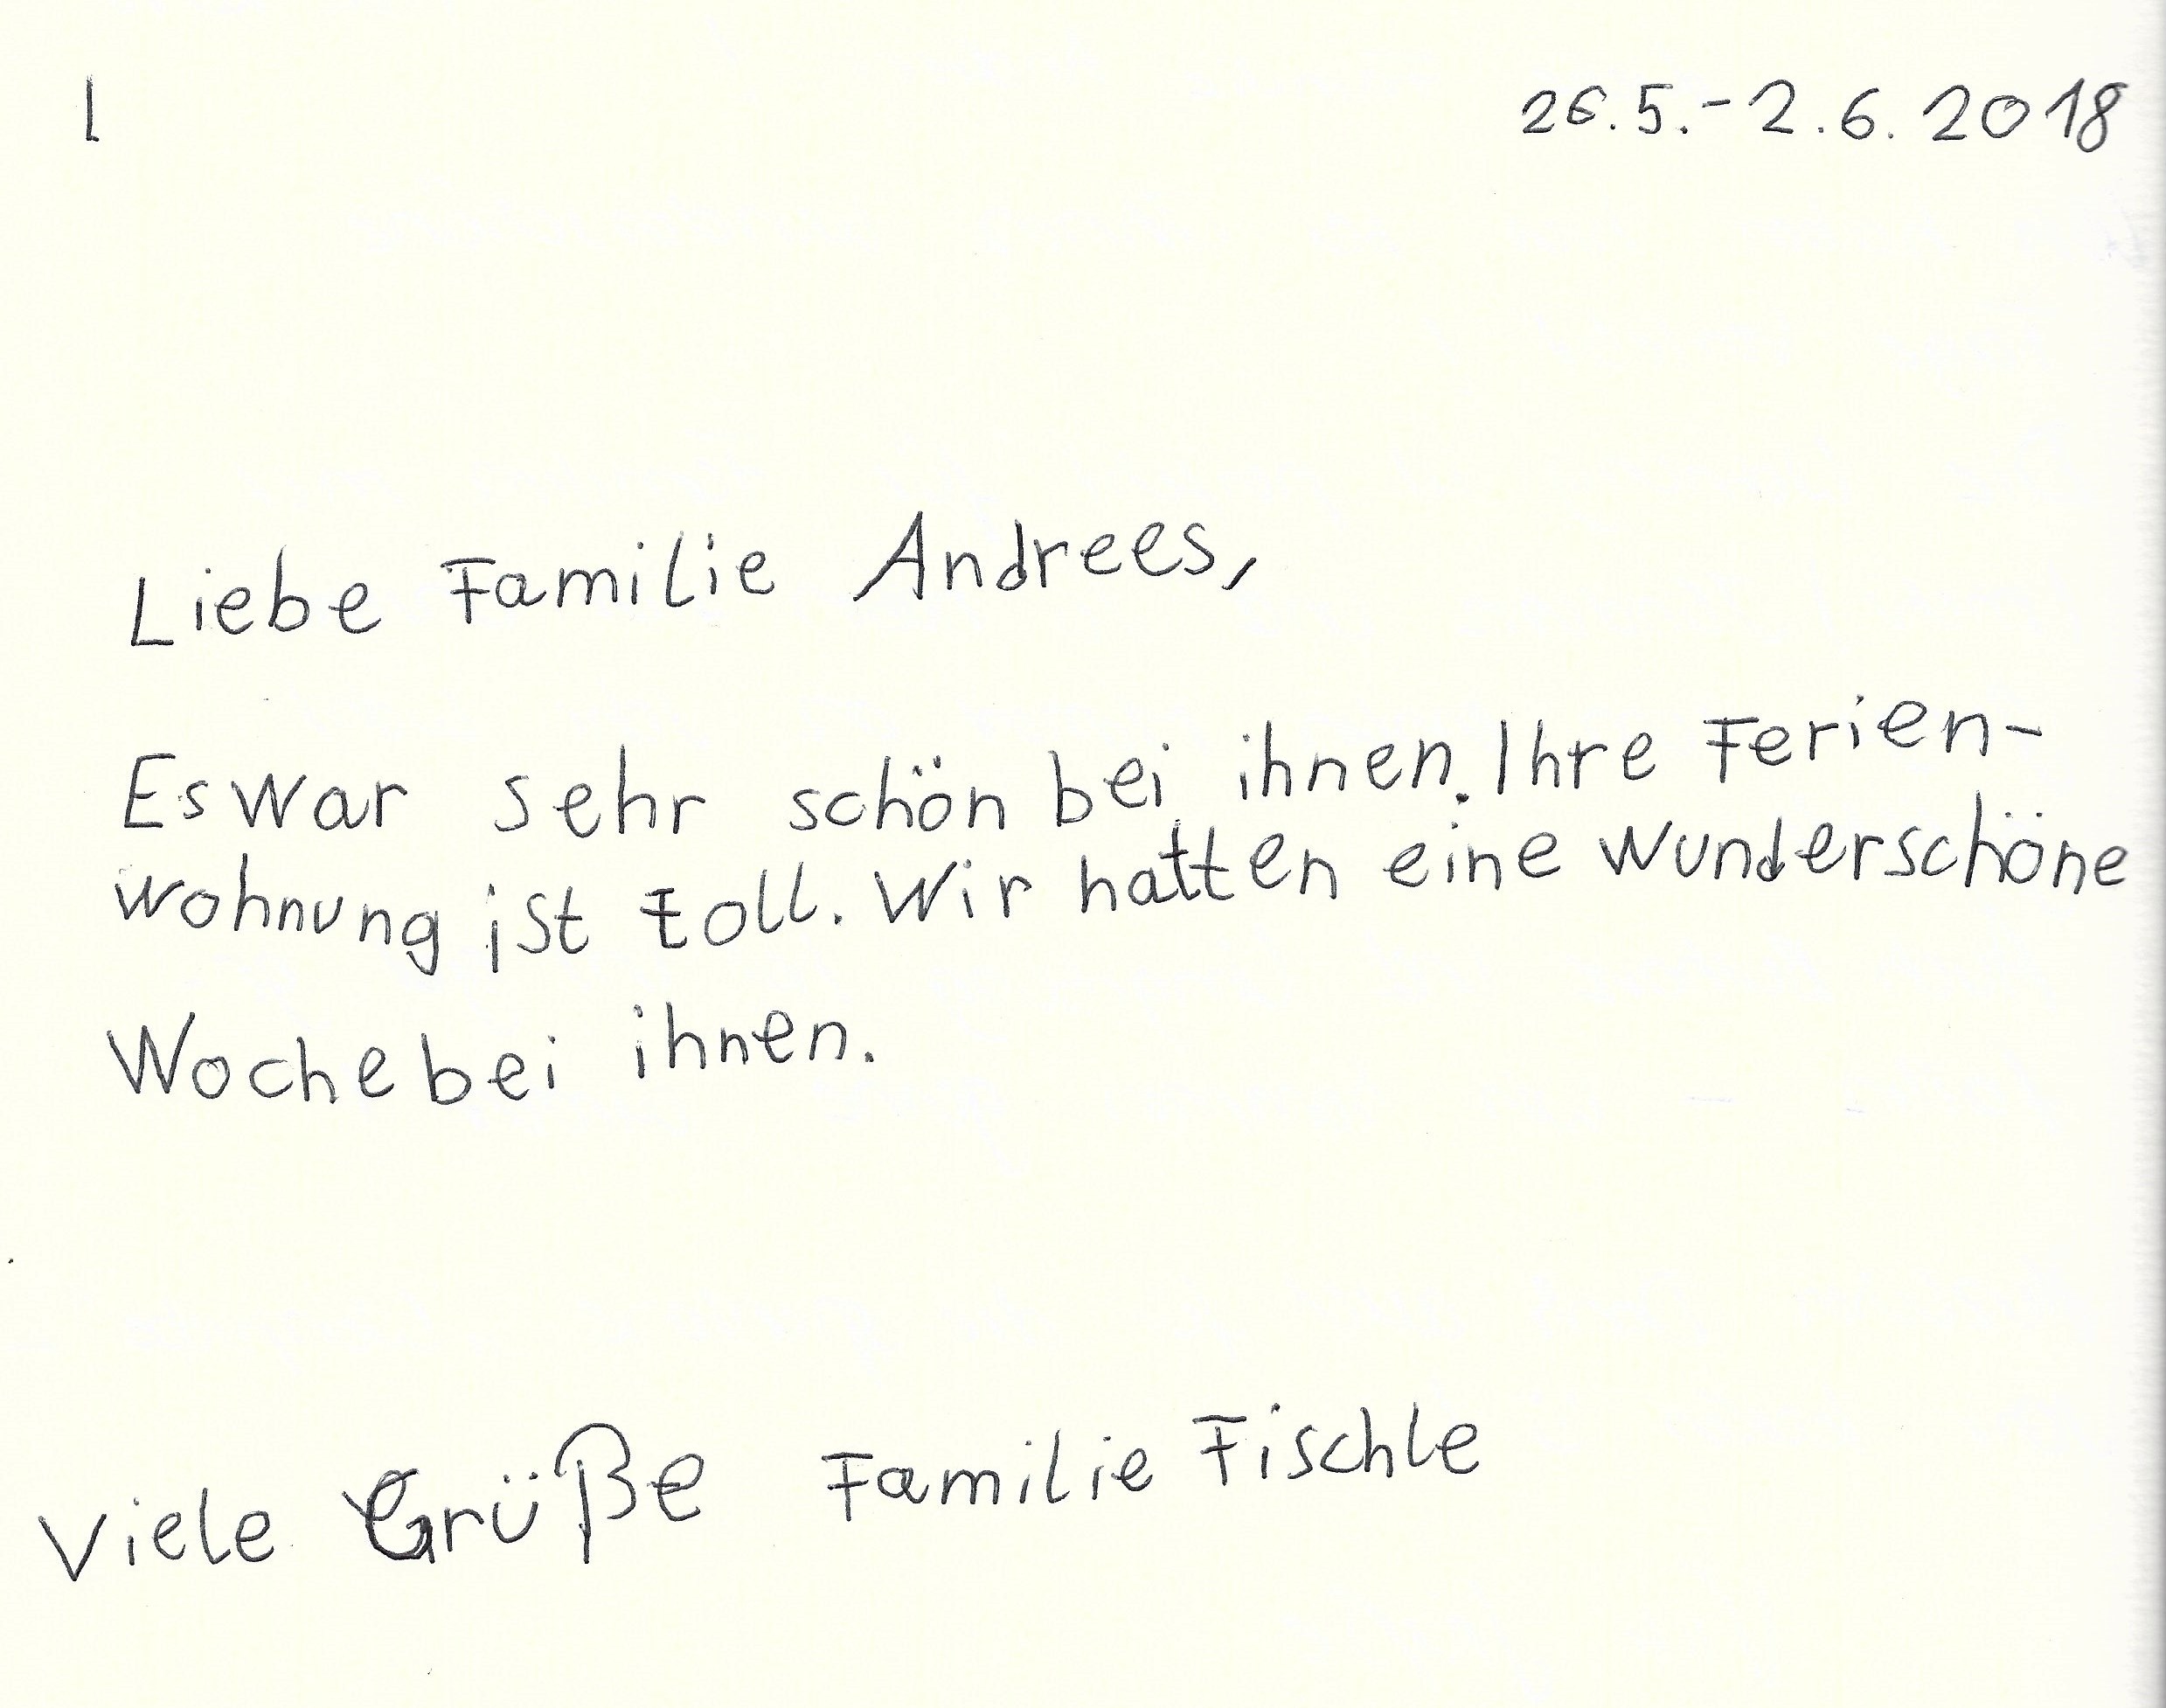 26.5.-2.6.2018
Liebe Familie Andrees,
Es war sehr schön bei ihnen. Ihre Ferien-
wohnung ist toll. Wir hatten eine wunderschöne
Woche bei ihnen.
Viele Grüße Familie Fischle